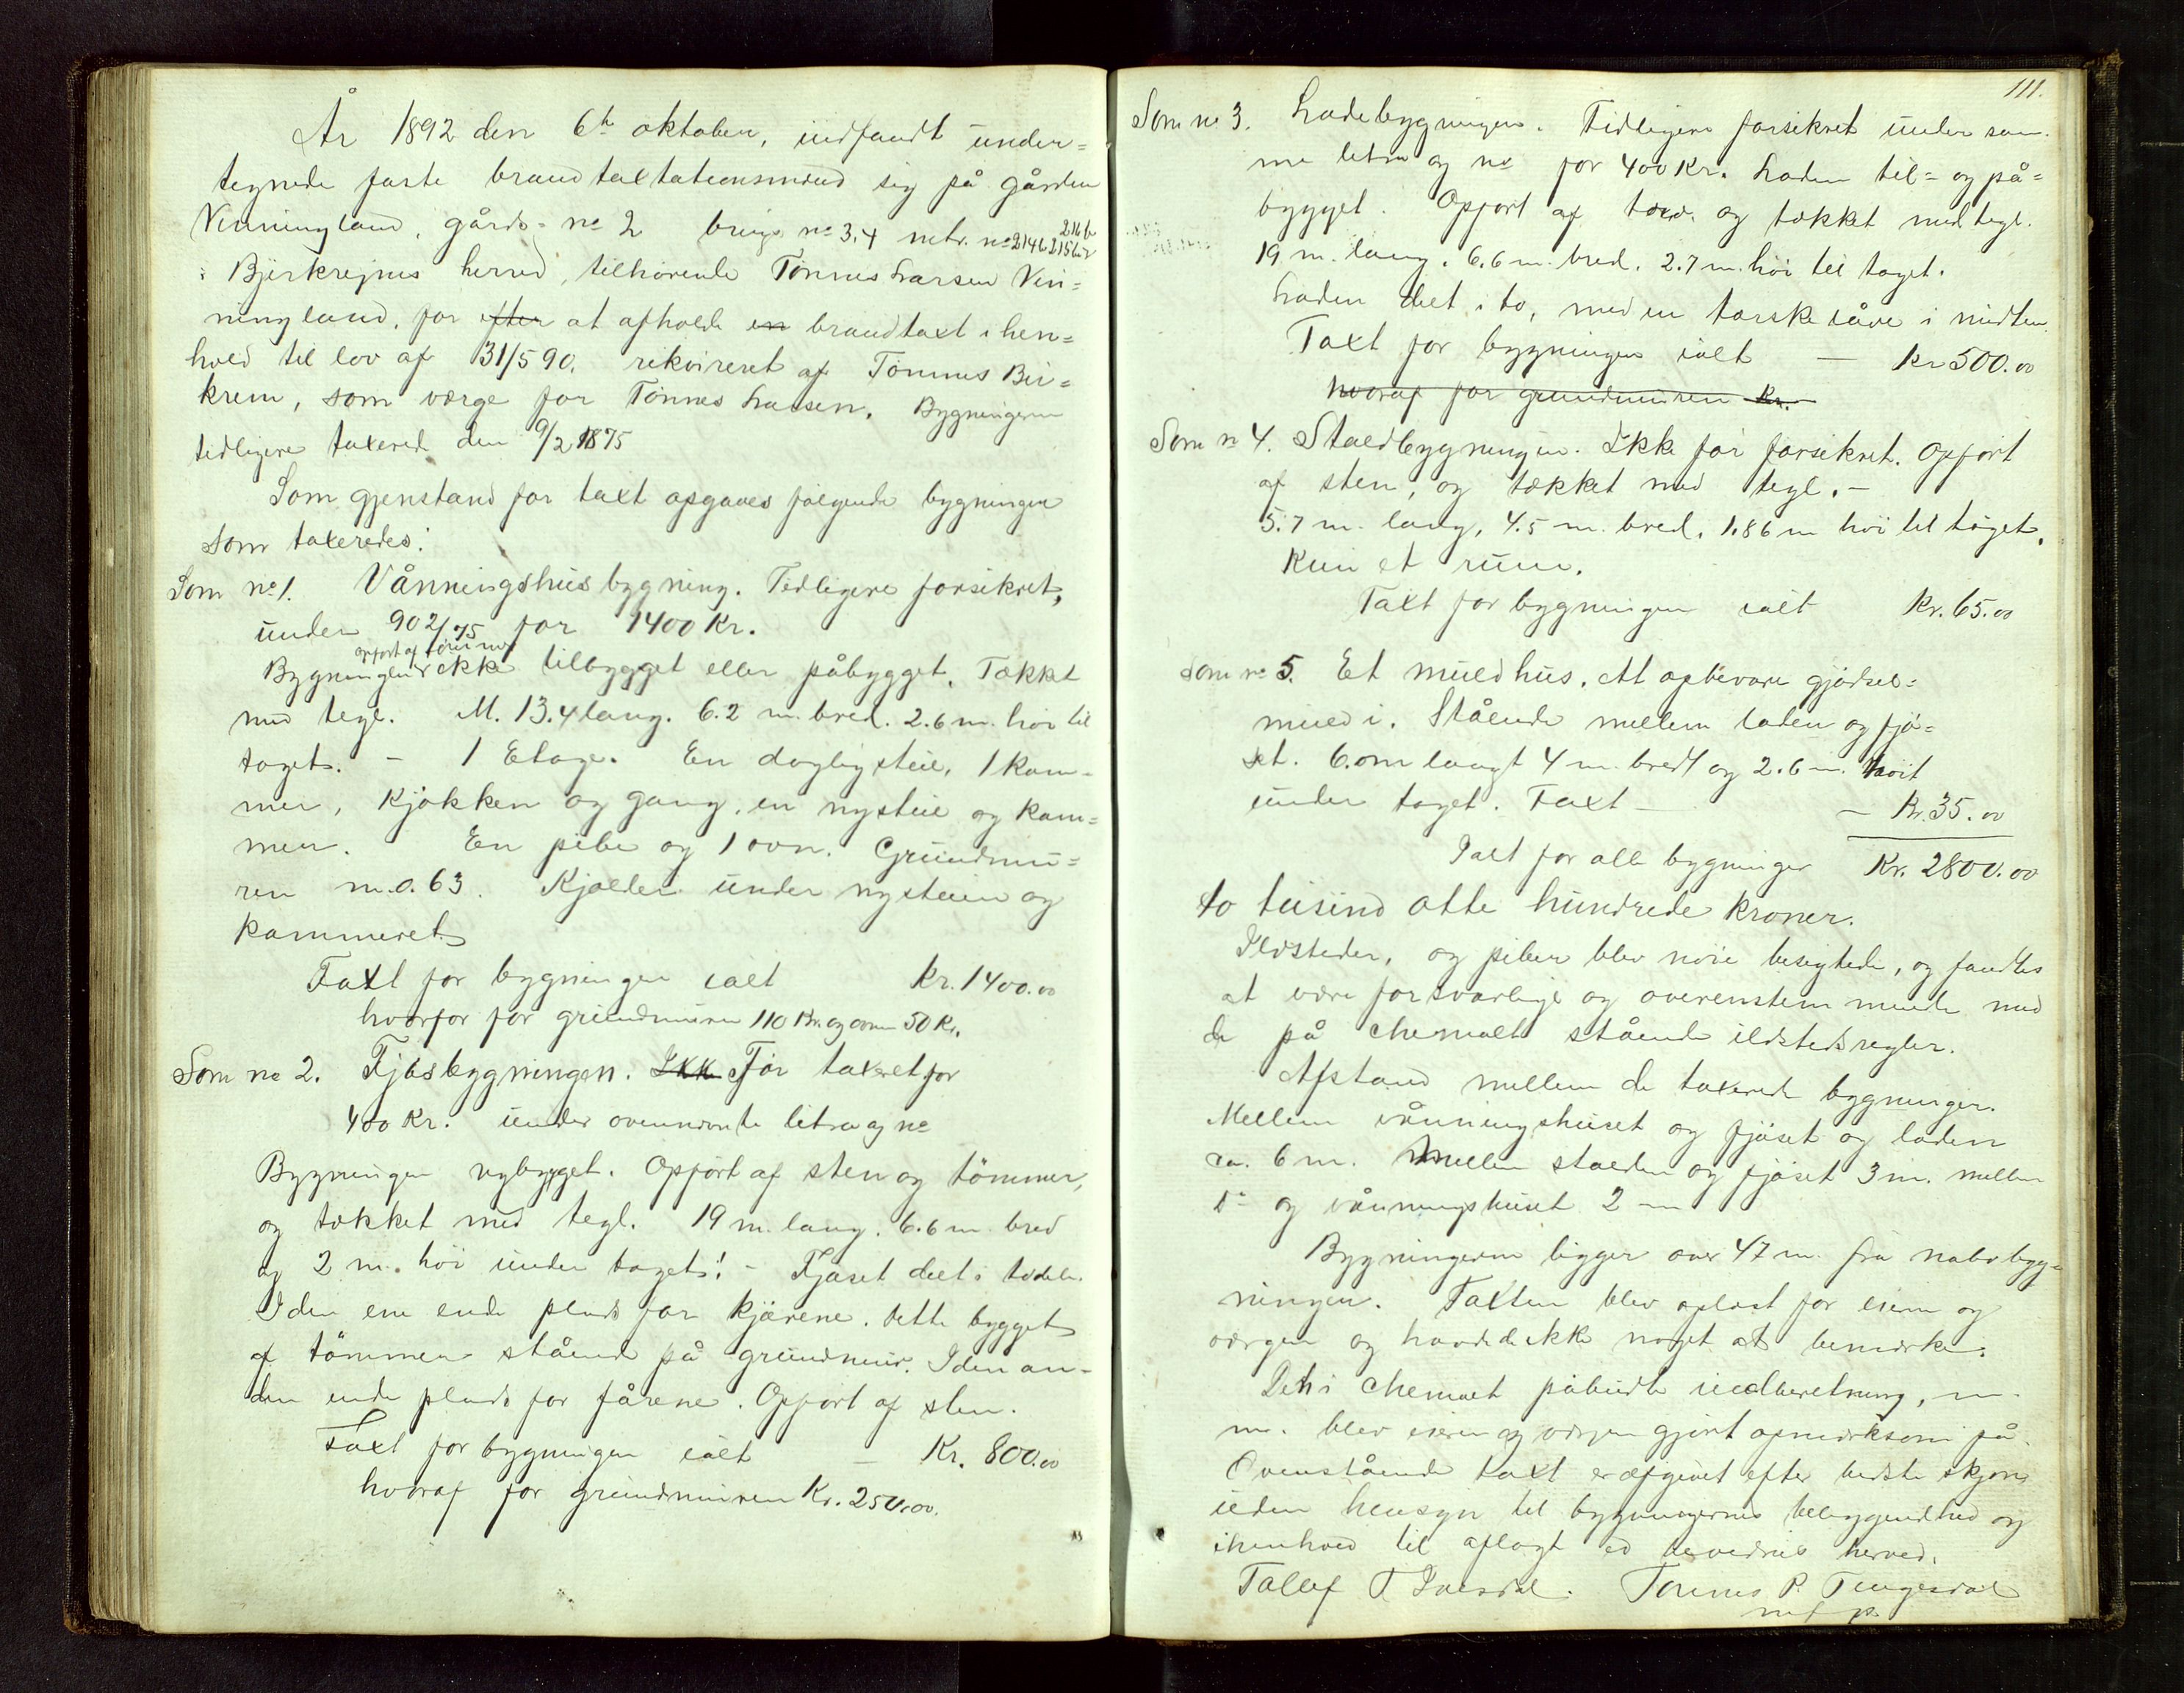 År 1892 den 6te oktober, indfandt under=
tegnede faste brandtaxtationsmænd sig på gården
Vinningland, gårds= no 2 brugs no 3,4 matr. no 214b 215b2 216b
i Bjerkrejms herred, tilhørende Tønnes Larsen Vin=
ningland, for efter at afholde en brandtaxt i hen=
hold til lov af 31/5 90. rekvireret af Tønnes Bir=
krem, som værge for Tønnes Larsen. Bygningerne
tidligere taxerede den 9/2 1875
Som gjenstand for taxt opgaves følgende bygninger
som taxeredes:
Som no 1. Vånningshusbygning. Tidligere forsikret,
under 902/75 for 1400 Kr.
opført af tømmer
Bygningen ikke tilbygget eller påbygget. Tækket
med tegl. M. 13.4 lang. 6.2 m. bred. 2.6 m. høi til
taget. - 1 Etage. En dagligstue, 1 kam=
mer, Kjøkken og gang, en nystue og kam=
mer. En pibe og 1 ovn. Grundmu=
ren m. 0.63. Kjælder under nystuen og
kammeret
Taxt for bygningen ialt Kr. 1400.00
hvorfor for grundmuren 110 Kr. og ovnen 50 Kr.
Som no 2. Fjøsbygningen. Ikke Før taxeret for
400 Kr. under ovennævnte litra og no
Bygningen nybygget. Opført af sten og tömmer,
og tækket med tegl. 19 m. lang. 6.6 m. bred
og 2 m. høi under taget. - Fjøset delt i to dele.
I den ene ende plads for kjørene. dette bygget
af tömmer stående på grundmur. I den an=
den ende plads for fårene. Opført af sten.
Taxt for bygningen ialt - Kr. 800.00
hvoraf for grundmuren Kr. 250.00.
111.
Som no 3. Ladebygningen. Tidligere forsikret under sam=
me litra og no for 400 Kr. Laden til= og på=
bygget. Opført af træ. og tækket med tegl.
19 m. lang. 6.6 m. bred. 2.7 m. høi til taget.
Laden delt i to, med en tærskelåve i midten.
Taxt for bygningen ialt - Kr 500.00
hvoraf for grundmuren Kr. -
Som no 4. Staldbygningen. Ikke før forsikret. Opført
af sten, og tækket med tegl. -
5.7 m. lang, 4.5 m. bred. 1.86 m høi til taget.
Kun et rum.
Taxt for bygningen ialt Kr. 65.00
Som no 5. Et muldhus. At opbevare gjødsel=
muld i. Stående mellem laden og fjø=
set. 6.0 m langt 4 m. bredt og 2.6 m. høit
under taget. Taxt - - Kr. 35.00
Ialt for alle bygninger Kr. 2800.00
to tusind otte hundrede kroner.
Ildsteder, og piber blev nøie besigtede, og fandtes
at være forsvarlige og overenstemmende med
de på skemaet stående ildstedsregler.
Afstand mellem de taxerede bygninger.
Mellem vånningshuset og fjøset og laden
ca. 6 m. Mellem stalden og fjøset 3 m. mellem
do og vånningshuset 2 m
Bygningerne ligger over 47 m. fra nabobyg=
ningen. Taxten blev oplæst for eieren og
værgen og havde ikke noget at bemærke.
Den i skemaet påbudte indberetning, m.
m. blev eieren og værgen gjort opmærksom på.
Ovenstående taxt er afgivet efter bedste skjøn
uden hensyn til bygningernes beliggendhed og
ihenhold til aflagt ed bevidnes herved.
Tallef T Ivesdal. Tønnes P. Tengesdal
m f p